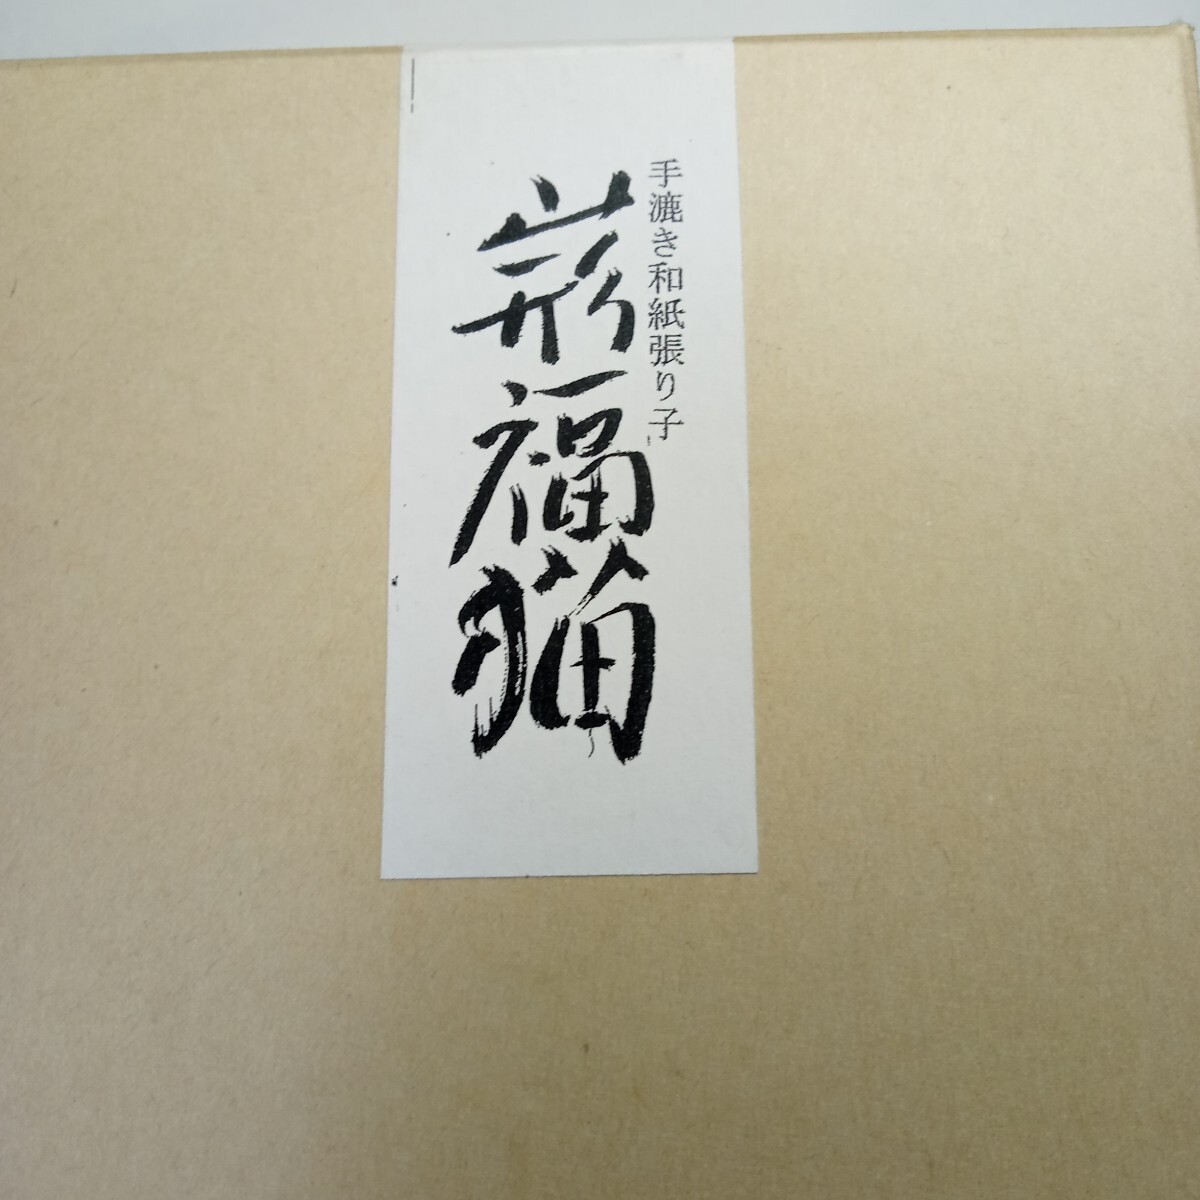 手漉き和紙張り子
福猫